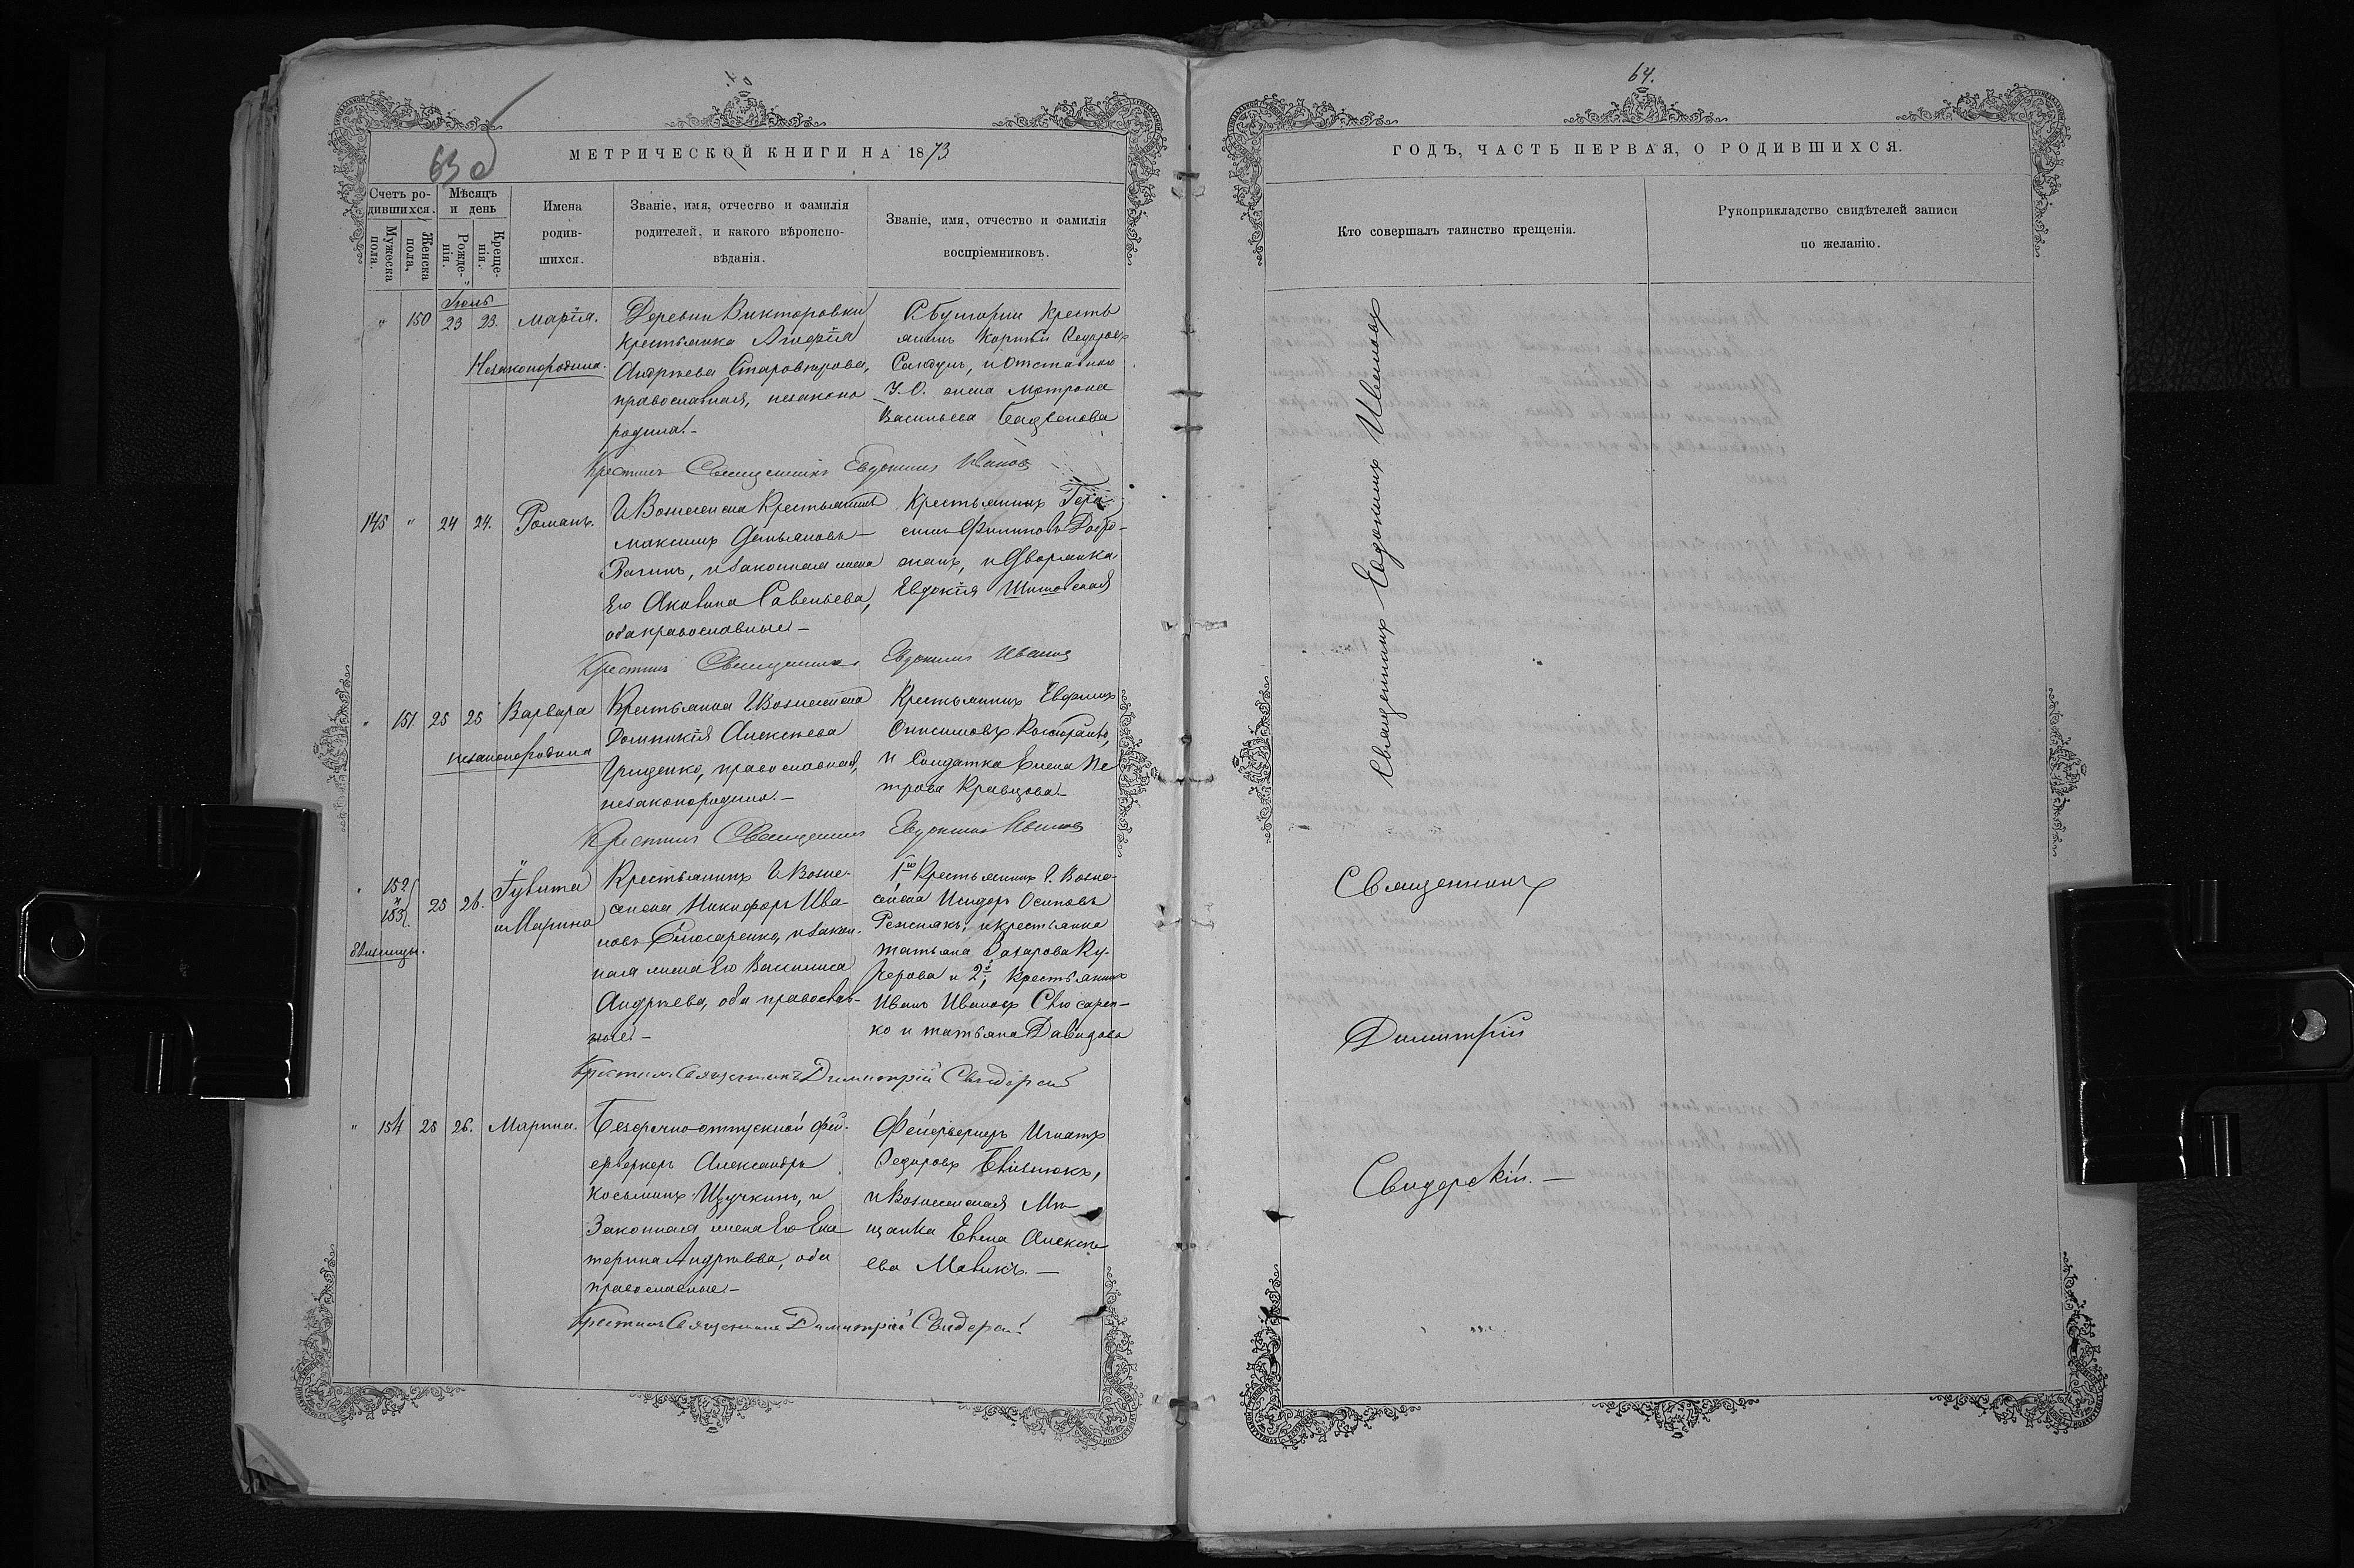 63
МЕТРИЧЕСКОЙ КНИГИ НА 1873
Счетъ ро-
дившихся.
Мужеска
пола.
Женска
пола.
Мѣсяцъ
и день
Рожде-
нія.
Креще-
нія.
Имена
родив-
шихся.
Званіе, имя, отчество и фамилія
родителей, и какого вѣроиспо-
вѣданія.
Званіе, имя, отчество и фамилія
воспріемниковъ.
" 150 23 23. Марія.
Незаконорожден.
Деревни Викторовки
крестьянка Агафія
Андреева
православная, незаконо
родила.-
Кресть
янинъ Корнѣй
и отставнаго
У.О. жена Мотрона
Васильева
Крестилъ Священникъ Евдокимъ Ивановъ
145 " 24 24. Романъ.
Г. Вознесенска Крестьянинъ
Максимъ Демьяновъ
и законная жена
его Акилина Савельева,
оба православные-
Крестьянинъ Гера-
симъ Филиповъ Добро-
жанъ, и Дворянка
Евдокія
Крестилъ Священникъ Евдокимъ Ивановъ
" 151. 25 25 Варвара
незаконорожденна
Крестьянка Г. Вознесенска
Домникія Алексеева
Гриценко, православная,
незаконородила.-
Крестьянинъ Евфимъ
Онисимовъ
и Солдатка Елена Пе
трова Кравцова.-
Крестилъ Священникъ Евдокимъ Ивановъ
" 152 и 153 25 26. Іулита
и Марина
близницы.
Крестьянинъ Г. Возне-
сенска Никифоръ Ива-
новъ Слюсаренко, и закон-
ная жена его Василиса
Андреева, оба православ-
ные.-
1й Крестьянинъ Г. Возне-
сенска Исидоръ Осиповъ
Резникъ, и крестьянка
Татьяна Захарова Ку-
черова и 2й, Крестьянинъ
Иванъ Ивановъ Слюсарен-
ко и Татьяна Давидова
Крестилъ Священникъ Димитрій Свидерскій
" 154 25 26. Марина.
Безсрочно-отпускной фей-
ерверкеръ Александръ
Косьминъ Щучкинъ, и
Законная жена его Ека
терина Андреева, оба
православные-
Фейерверкеръ Игнатъ
Федоровъ
и Вознесенская Мѣ-
щанка Елена Алексѣ-
ева Мовикъ.-
Крестилъ Священникъ Димитрій Свидерскій
64.
ГОДЪ, ЧАСТЬ ПЕРВАЯ, О РОДИВШИХСЯ.
Кто совершалъ таинство крещенія.
Рукоприкладство свидѣтелей записи
по желанію.
Священникъ Евдокимъ Ивановъ
Священникъ
Димитрій
Свидерскій.-